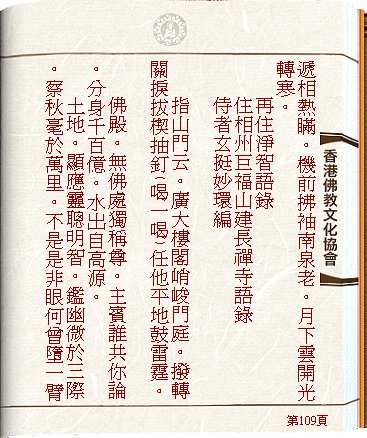 遞相熱瞞。機前拂袖南泉老。月下雲開光
轉寒。
再住淨智語錄
住相州巨福山建長禪寺語錄
侍者玄挺妙環編
指山門云。廣大樓閣峭峻門庭。撥轉
關捩拔楔抽釘(喝一喝)任他平地鼓雷霆。
佛殿。無佛處獨稱尊。主賓誰共你論
。分身千百億。水出自高源。
土地。顯應靈聰明智。鑑幽微於三際
。察秋毫於萬里。不是是非眼何曾墮一臂
香港佛教文化協會
第109頁